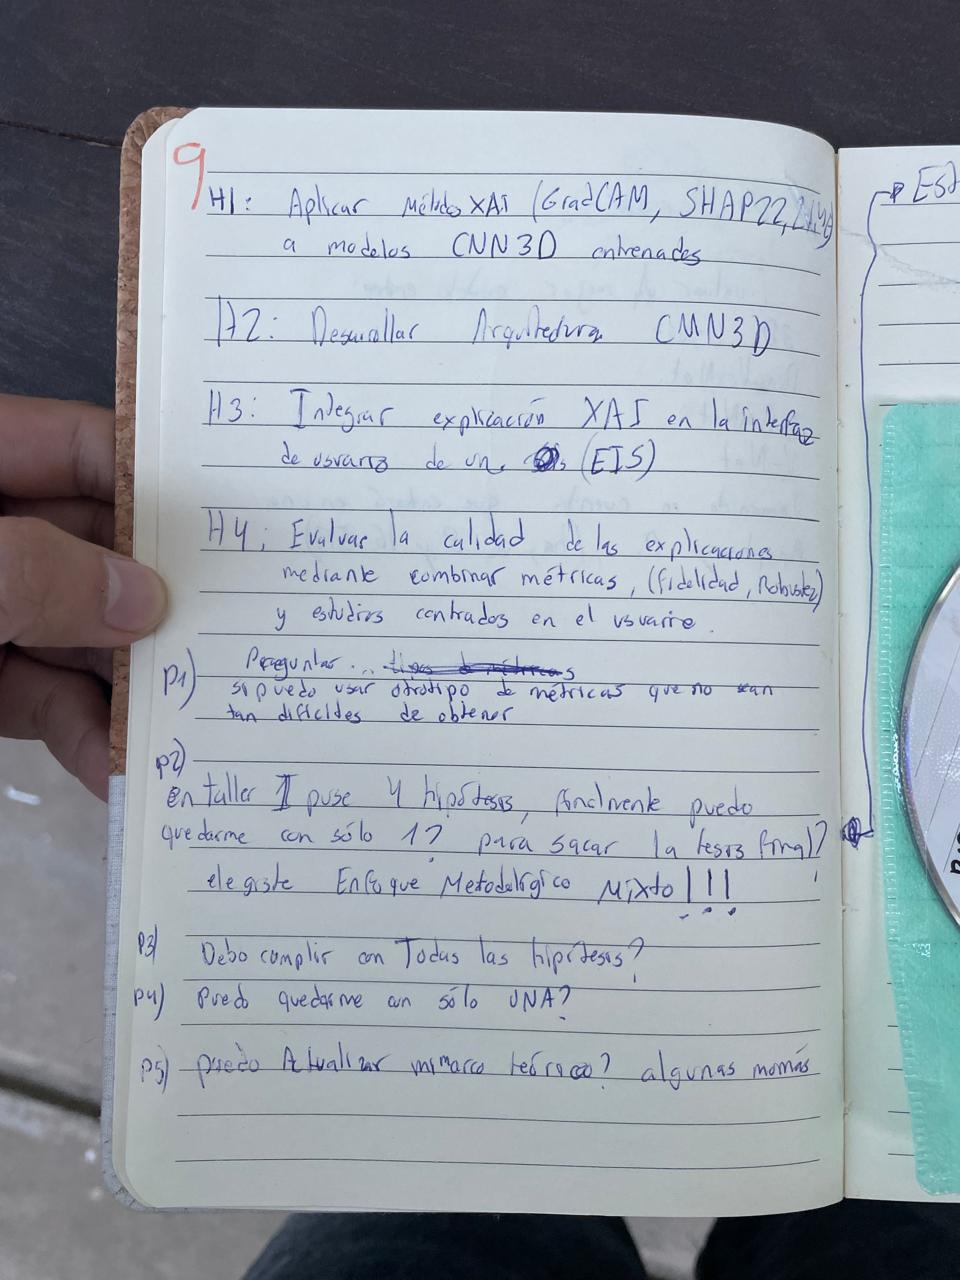 9
H1: Aplicar Método XAI (GradCAM, SHAP22,
a modelos CNN3D entrenados
H2: Desarrollar Arquitectura CMN3D
H3: Integrar explicación XAI en la interfaz
de usuario de un (EIS)
H4: Evaluar la calidad de las explicaciones
mediante combinar métricas, (fidelidad, Robustez)
y estudios centrados en el usuario.
P1) Preguntar...
si puedo usar otrotipo de métricas que no sean
tan dificides de obtener
P2)
En taller I puse 4 hipótesis, finalmente puedo
quedarme con sólo 1? para sacar la tesis final?
elegiste Enfoque Metodológico Mixto!!!
P3) Debo cumplir con Todas las hipótesis?
P4) Puedo quedarme con sólo UNA?
P5) puedo Actualizar mi marco teórico? algunas
Est